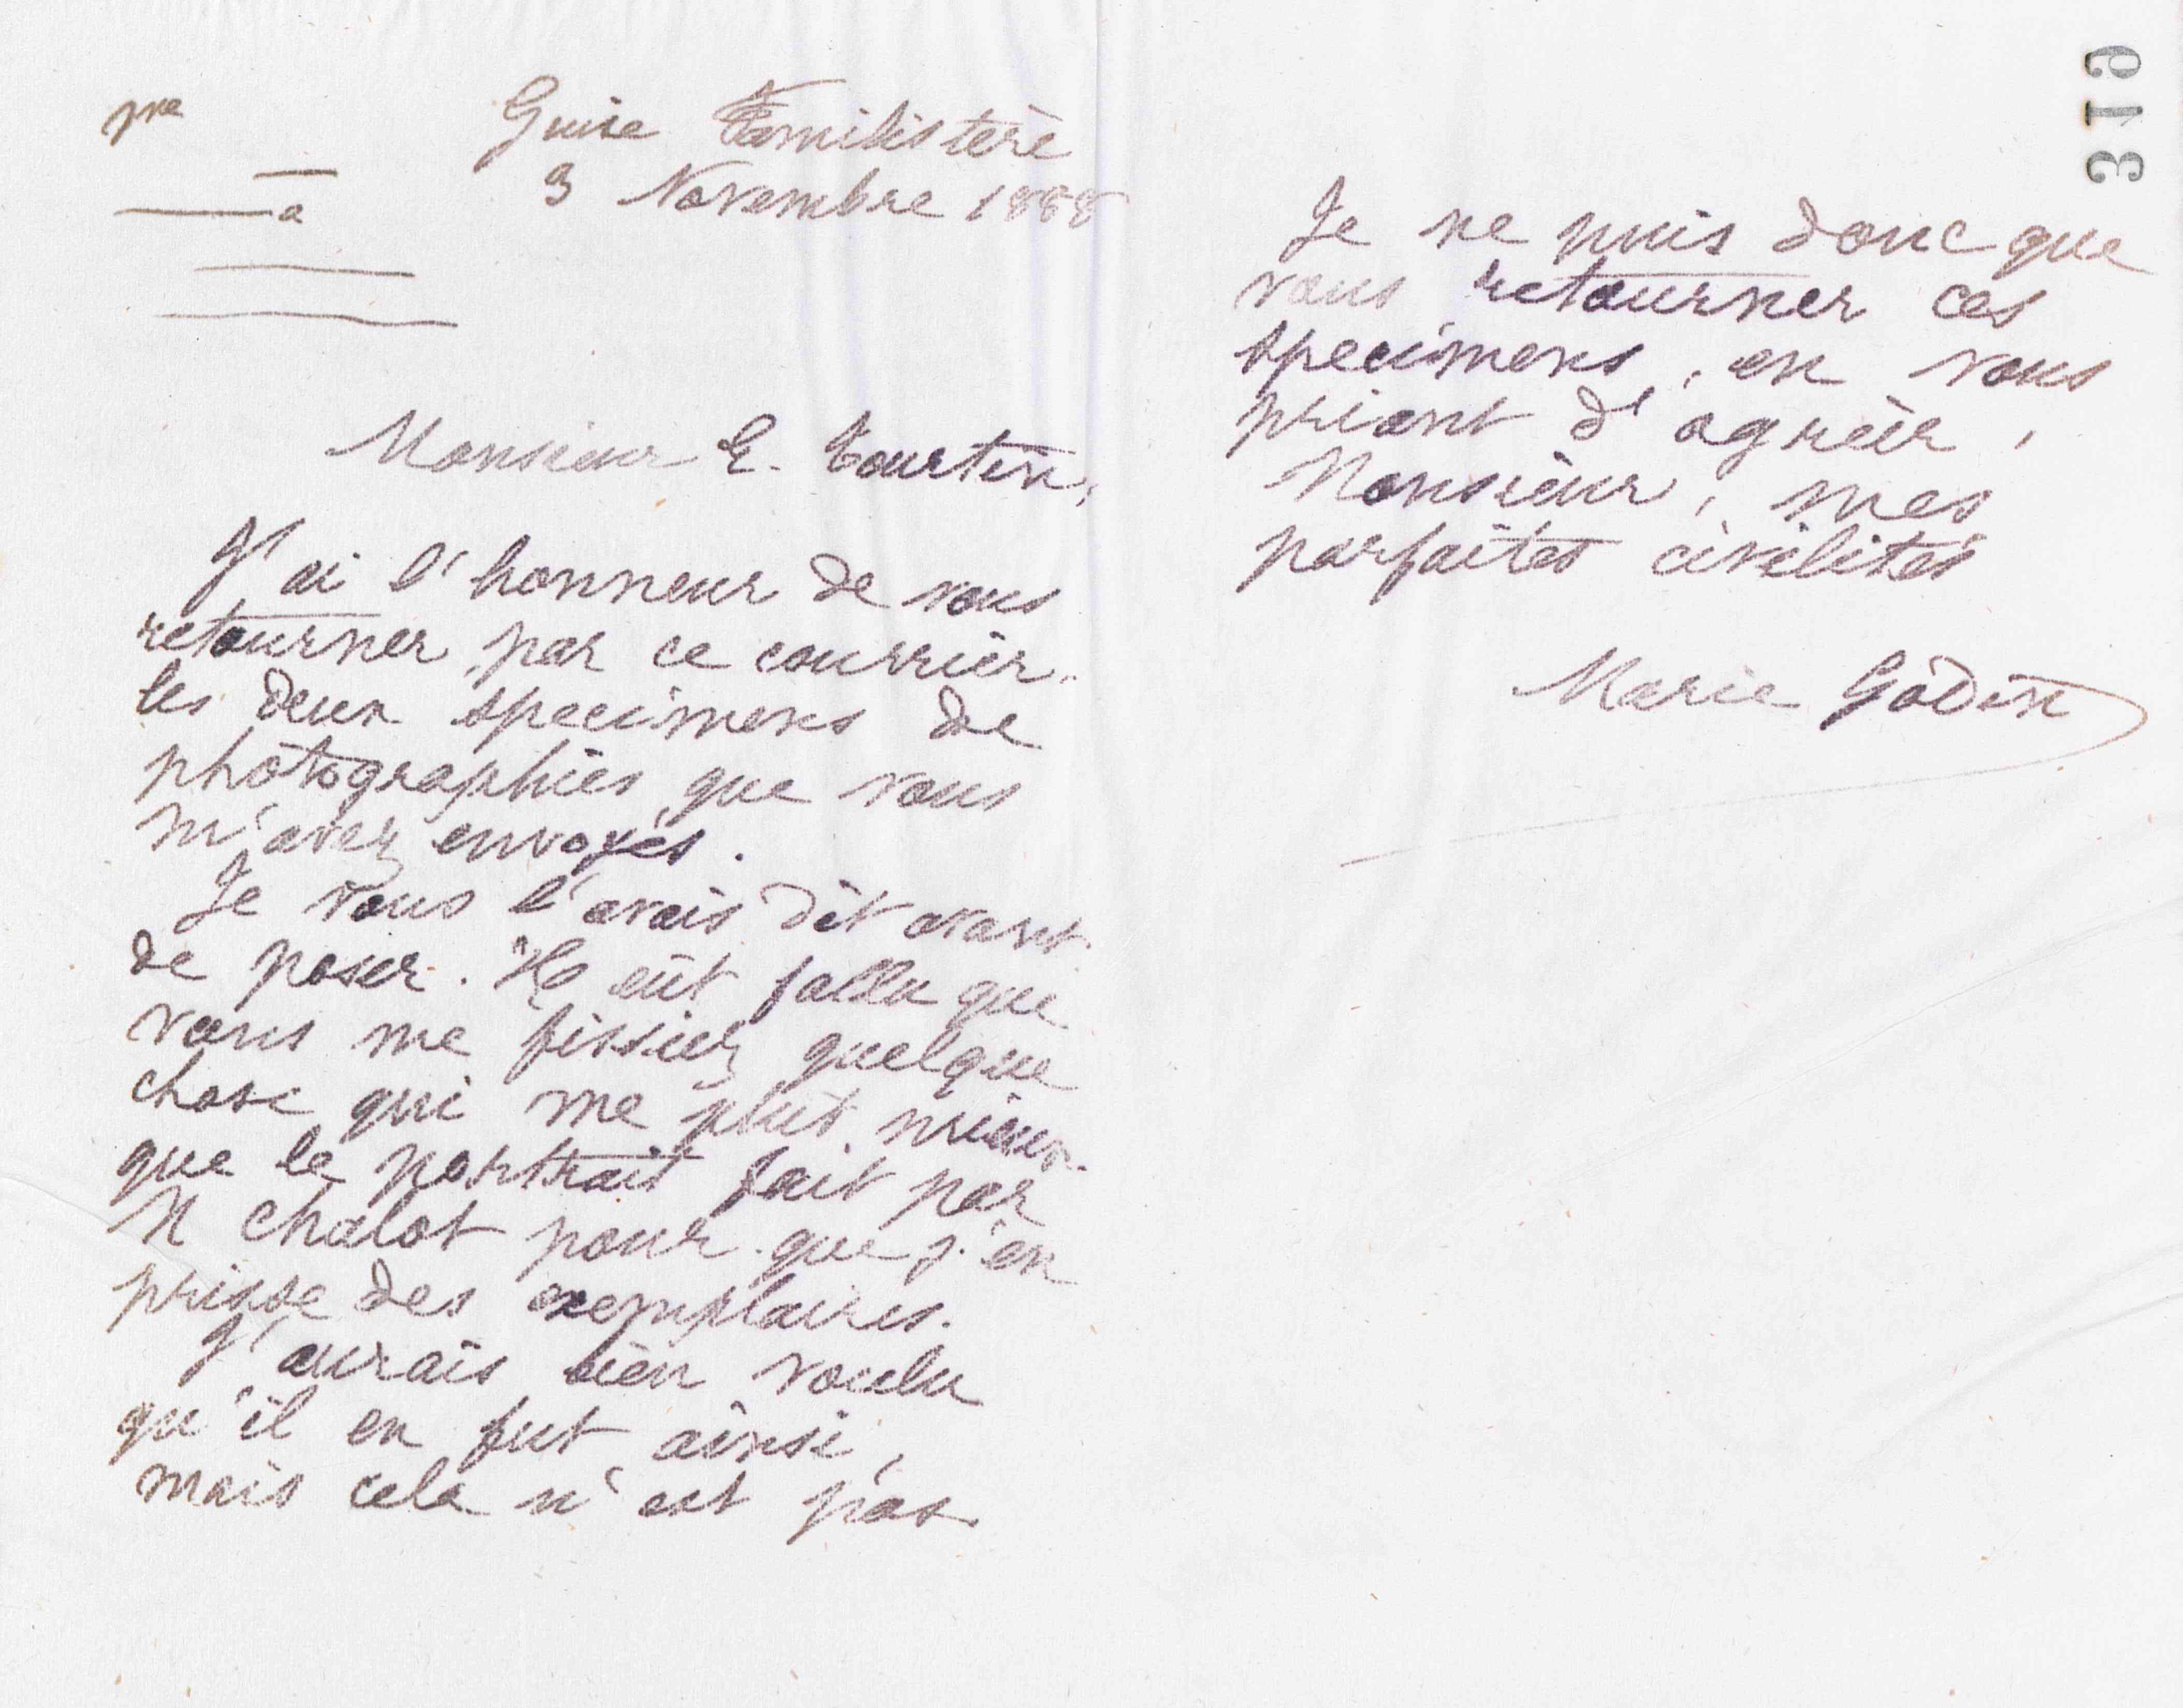 pre
a
Guise Familistère
3 Novembre 1888
Monsieur E. Tourtin,
J'ai l'honneur de vous
retourner par ce courrier
les deux specimens de
photographies que vous
m'avez envoyés.
Je vous l'avais dit avant
de poser. Il eût fallu que
vous me fissiez quelque
chose qui me plût mieux
que le portrait fait par
M Chalot pour que j'en
prisse des exemplaires.
J'aurais bien voulu
qu'il en fut ainsi,
mais cela n'est pas.
319
Je ne puis donc que
vous retourner ces
specimens, en vous
priant d'agréer,
Monsieur, mes
parfaites civilités
Marie Godin